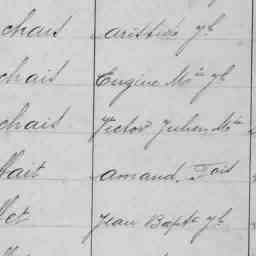 chais Aristide Jh
chais Eugène Mie Jh
chais Victor Julien Mie
llait Amand. Fois
llet Jean Bapte Jh